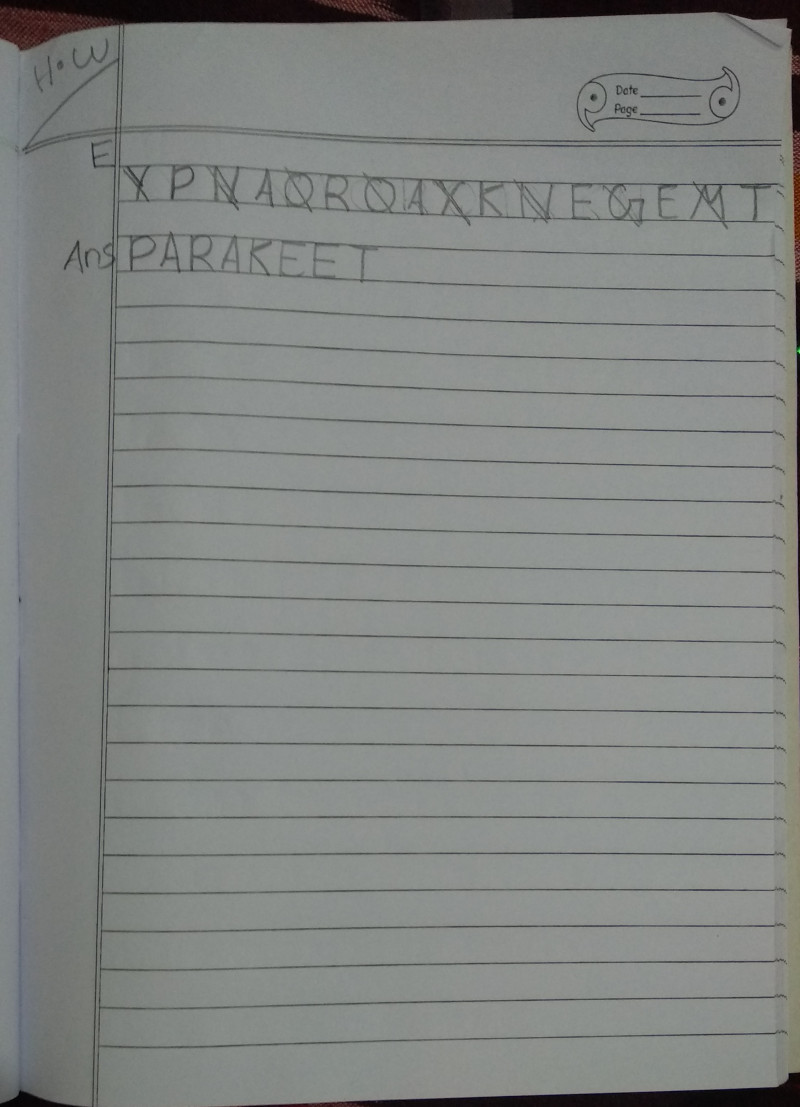 H.W
Date
Page
E
Y P N A Q R O A X K N E G E M T
Ans PARAKEET